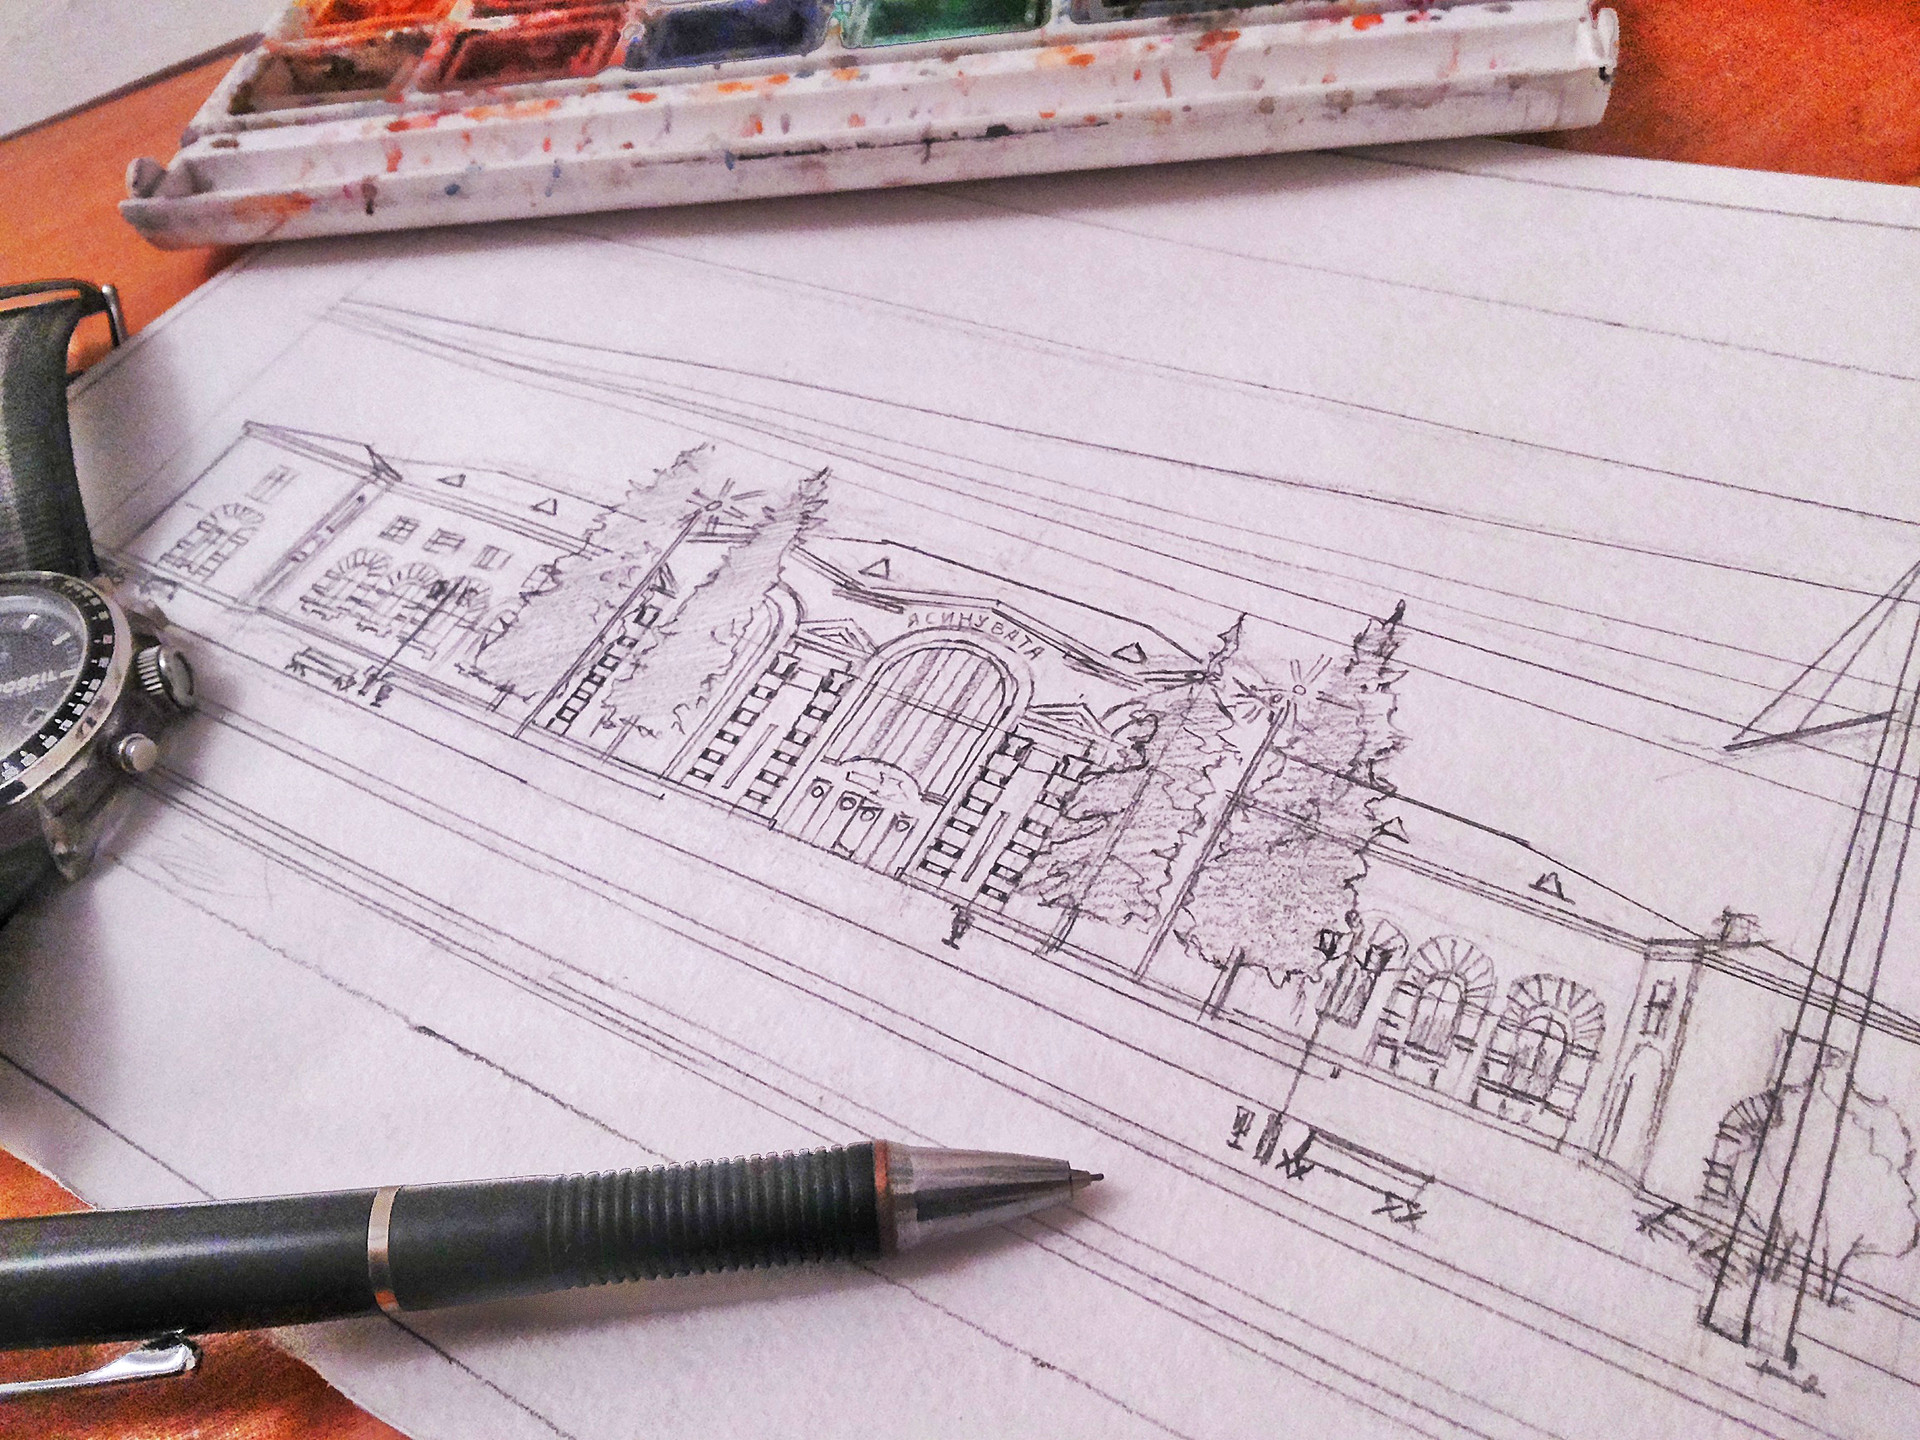 ЯСИНУВАТА
FOSSIL